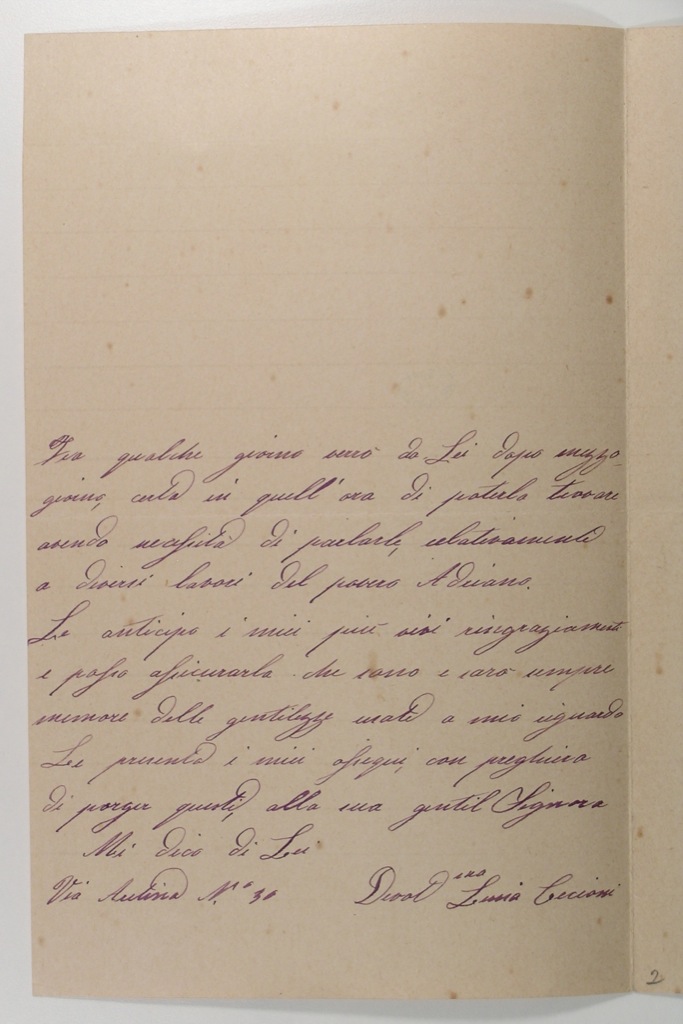 Fra qualche giorno verrò da Lei dopo mezzo-
giorno, certa in quell'ora di poterla trovare
avendo necessità di parlarle, relativamente
a diversi lavori del povero Adriano.
Le anticipo i miei più vivi ringraziamenti
e posso assicurarla che sono e sarò sempre
memore delle gentilezze usate a mio riguardo
Le presento i miei ossequi, con preghiera
di porger questi, alla sua gentil Signora
Mi dico di Lei
Via N.º 30 Devot.ma Luisa Cecioni
2